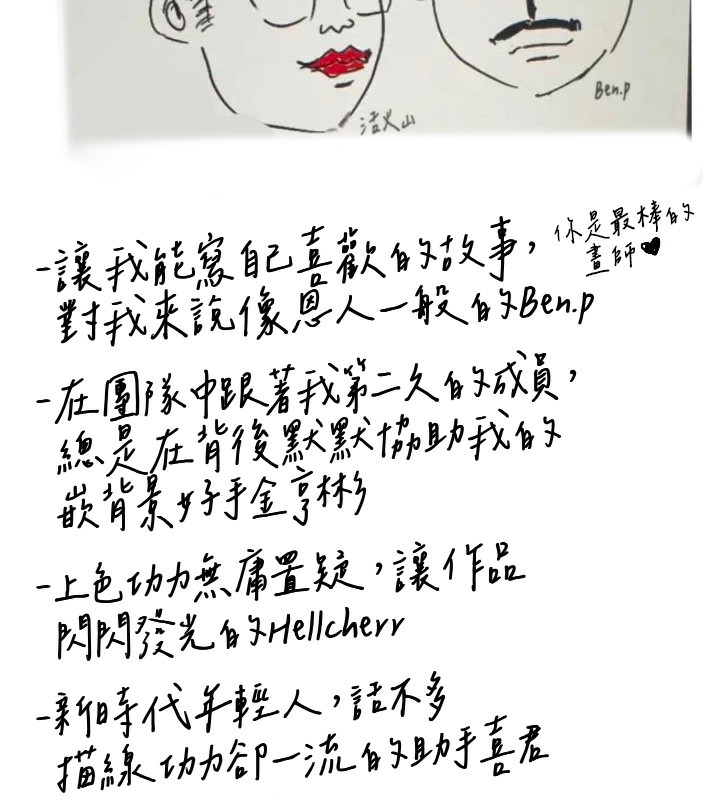 活火山
Ben.p
-讓我能寫自己喜歡的故事,
對我來說像恩人一般的Ben.p
你是最棒的
畫師♥
-在團隊中跟著我第二久的成員,
總是在背後默默協助我的
嵌背景好手金亨彬
-上色功力無庸置疑,讓作品
閃閃發光的Hellcherr
-新時代年輕人,話不多
描線功力卻一流的助手喜君